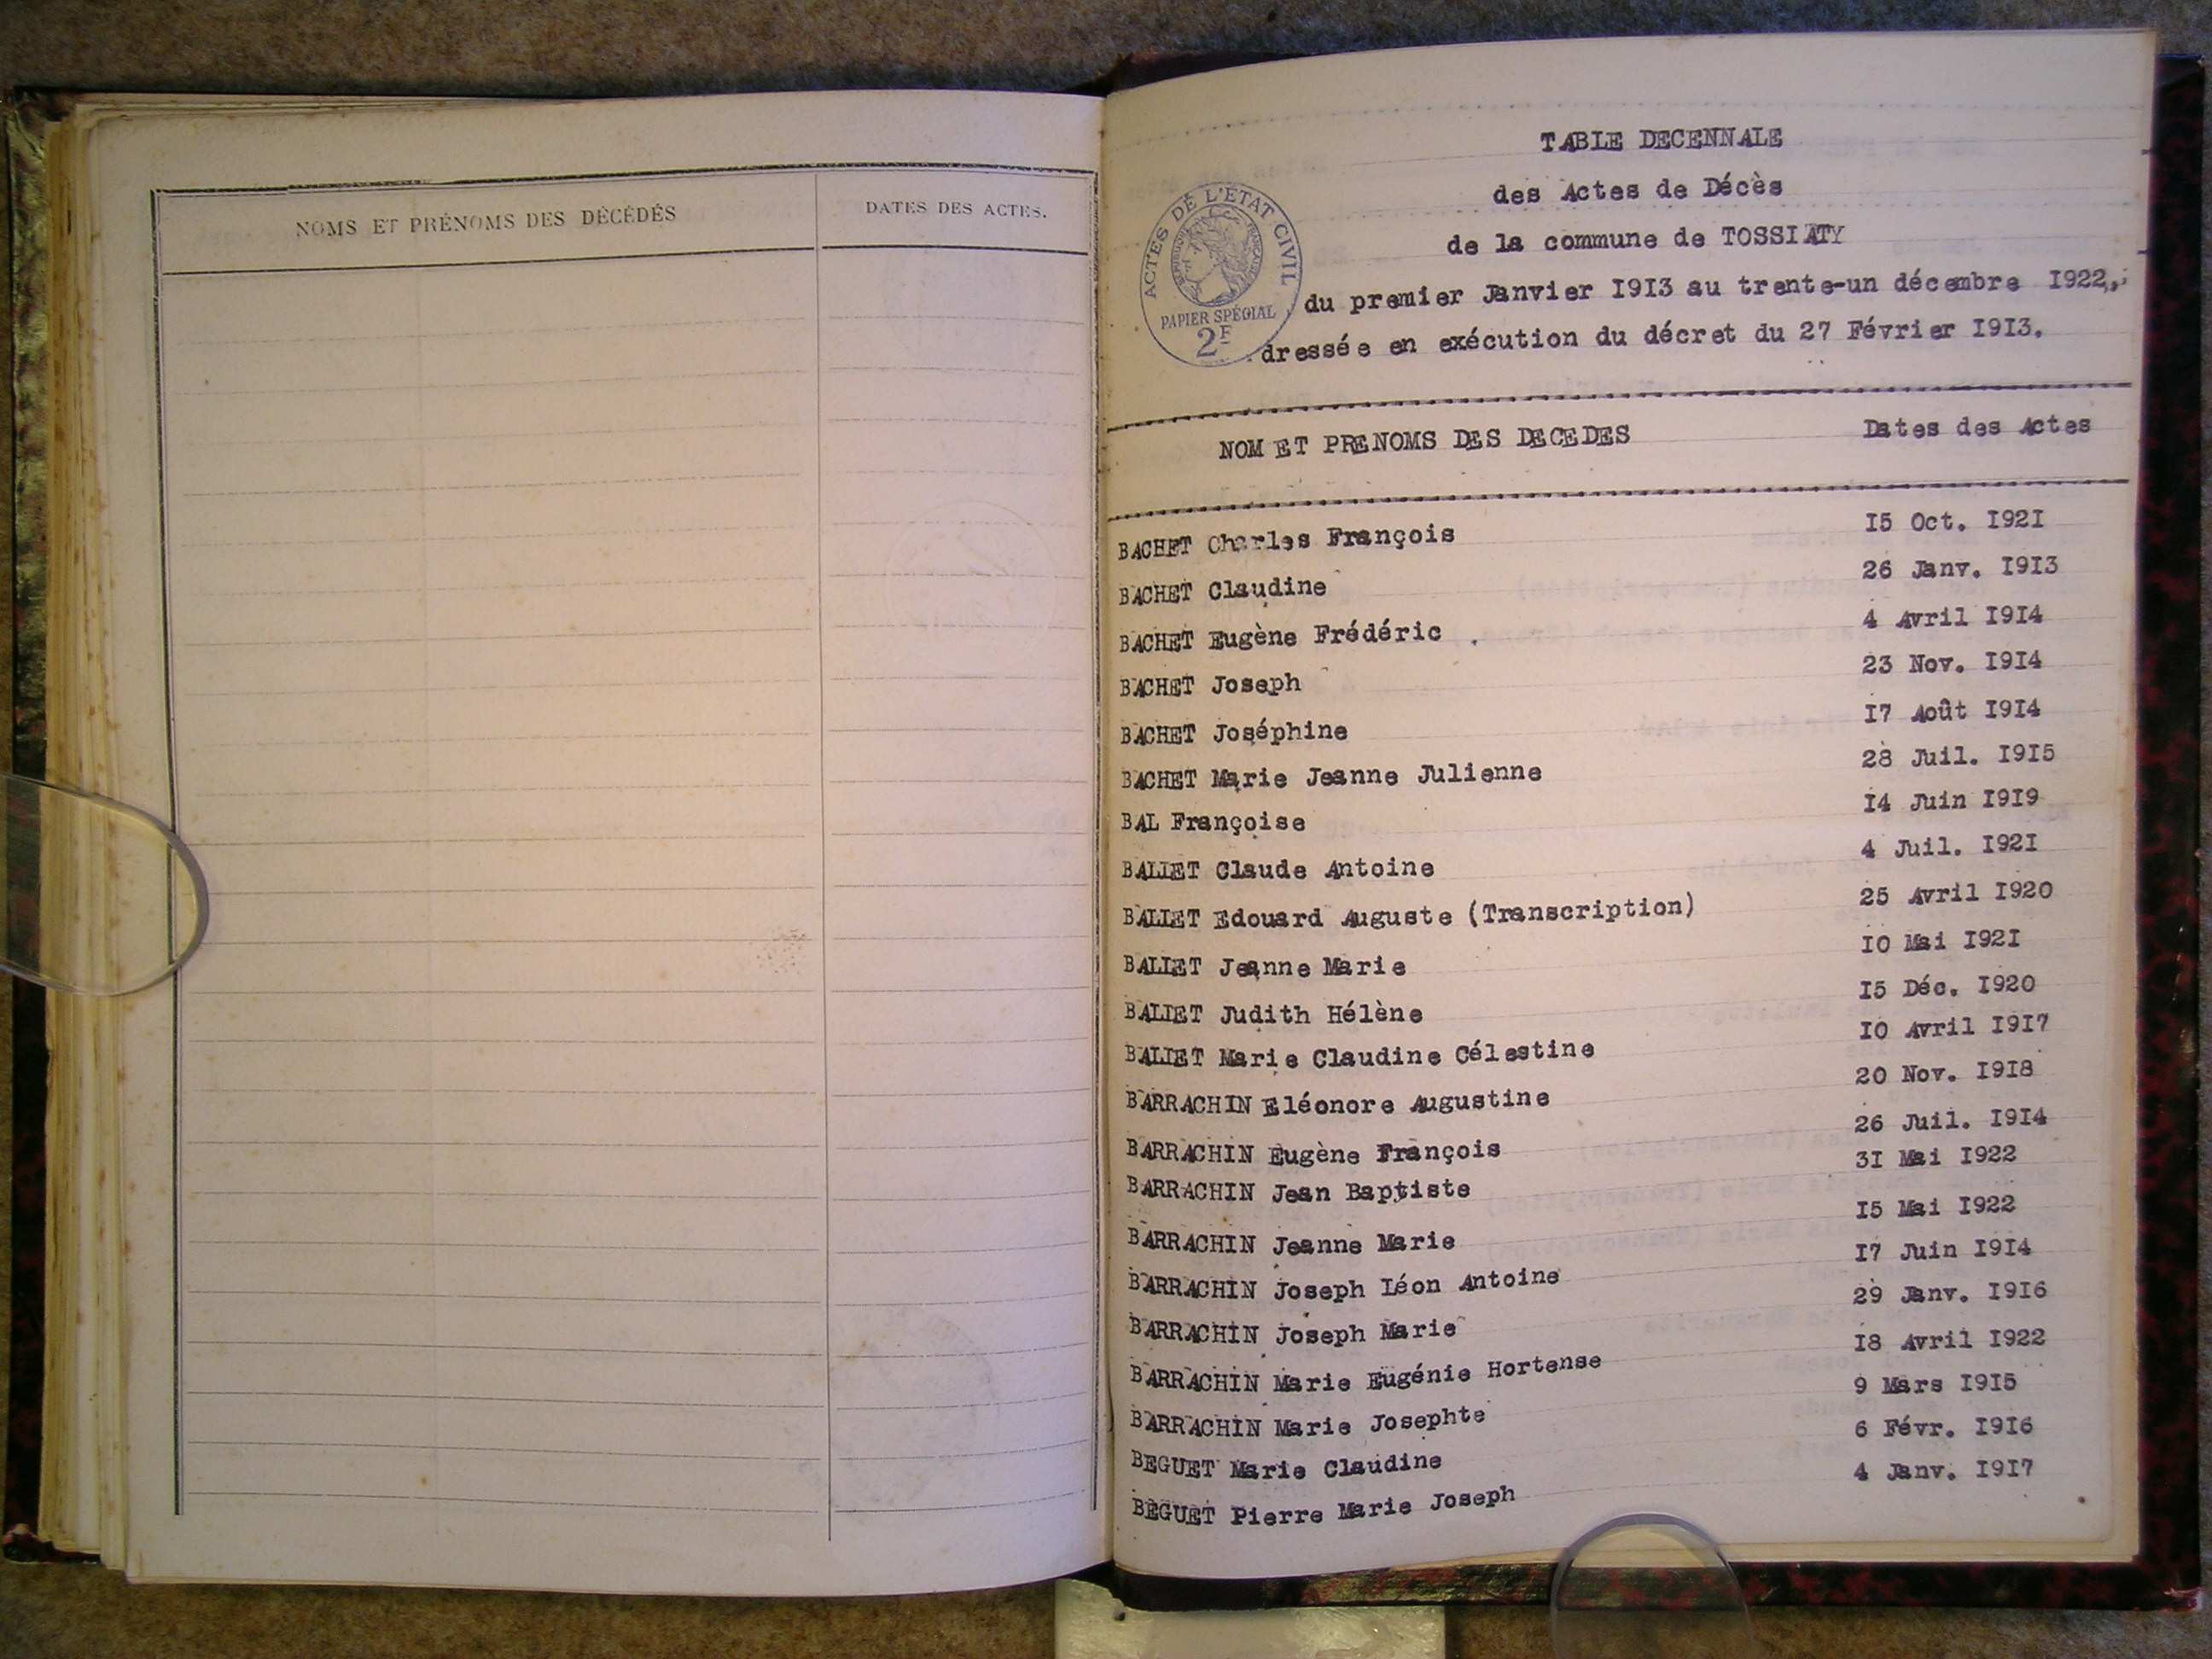 NOMS ET PRÉNOMS DES DÉCÉDÉS
DATES DES ACTES.
TABLE DECENNALE
des Actes de Décès
de la commune de TOSSIATY
du premier Janvier I9I3 au trente-un décembre I922,
dressée en exécution du décret du 27 Février I9I3.
ACTES DE L'ÉTAT CIVIL
RÉPUBLIQUE FRANÇAISE
PAPIER SPÉCIAL
2F
NOM ET PRENOMS DES DECEDES Dates des Actes
BACHET Charles François I5 Oct. I92I
BACHET Claudine 26 Janv. I9I3
BACHET Eugène Frédéric . 4 Avril I9I4
BACHET Joseph 23 Nov. I9I4
BACHET Joséphine I7 Août I9I4
BACHET Marie Jeanne Julienne 28 Juil. I9I5
BAL Françoise I4 Juin I9I9
BALLET Claude Antoine 4 Juil. I92I
BALLET Edouard Auguste (Transcription) 25 Avril I920
BALLET Jeanne Marie IO Mai I92I
BALLET Judith Hélène I5 Déc. I920
BALLET Marie Claudine Célestine IO Avril I9I7
BARRACHIN Eléonore Augustine 20 Nov. I9I8
BARRACHIN Eugène François 26 Juil. I9I4
BARRACHIN Jean Baptiste 3I Mai I922
BARRACHIN Jeanne Marie I5 Mai I922
BARRACHIN Joseph Léon Antoine I7 Juin I9I4
BARRACHIN Joseph Marie 29 Janv. I9I6
BARRACHIN Marie Eugénie Hortense I8 Avril I922
BARRACHIN Marie Josephte 9 Mars I9I5
BEGUET Marie Claudine 6 Févr. I9I6
BEGUET Pierre Marie Joseph 4 Janv. I9I7